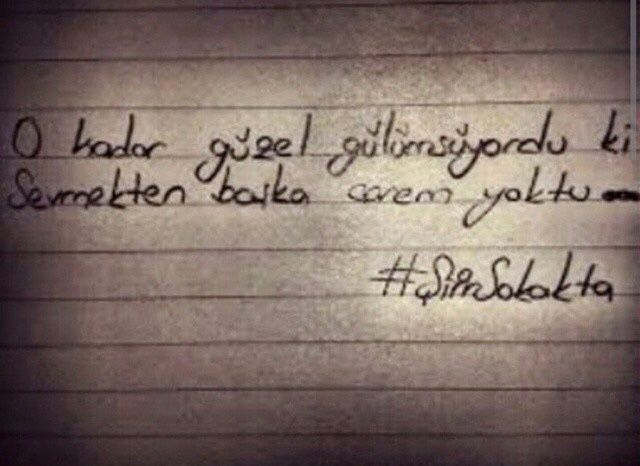 O kadar güzel gülümsüyordu ki
Sevmekten başka çarem yoktu
#ŞiirSokakta